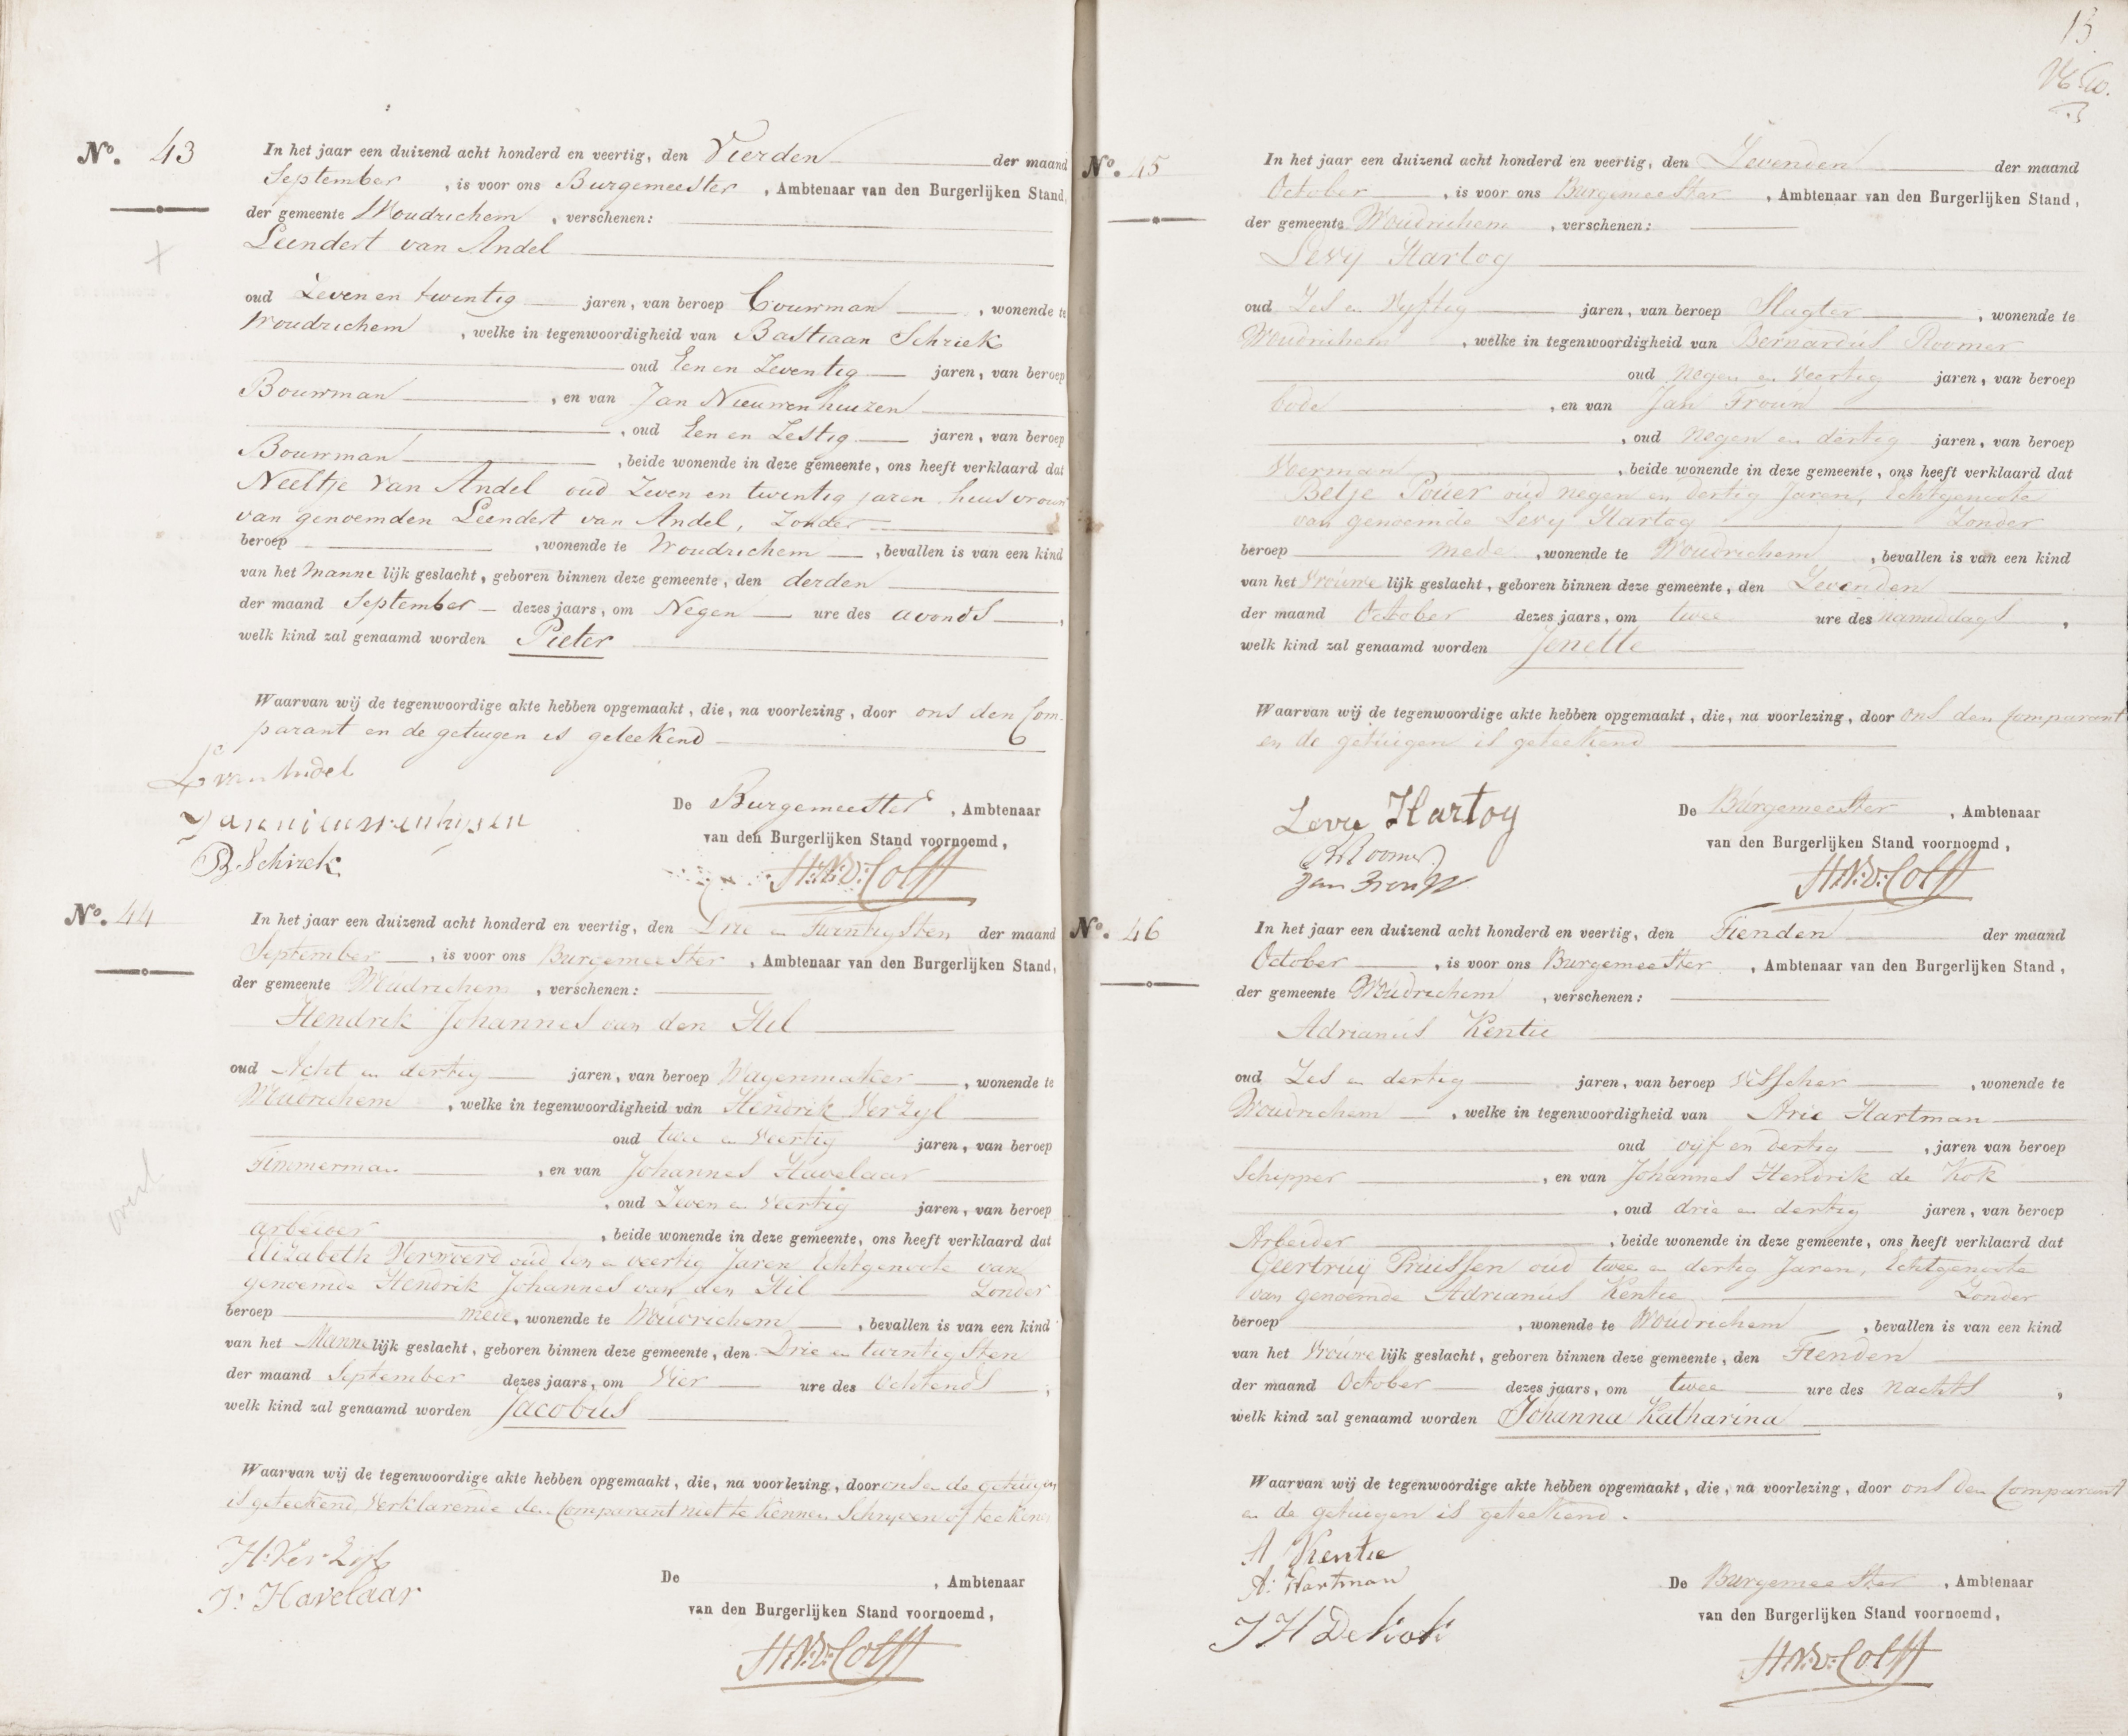 No. 43
In het jaar een duizend acht honderd en veertig, den Vierden der maand
September, is voor ons Burgemeester, Ambtenaar van den Burgerlijken Stand,
der gemeente Woudrichem, verschenen:
Leendert van Andel
oud Zeven en twintig jaren, van beroep Bouwman, wonende te
Woudrichem, welke in tegenwoordigheid van Bastiaan Schriek
oud Een en Zeventig jaren, van beroep
Bouwman, en van Jan Nieuwenhuizen
, oud Een en Zestig jaren, van beroep
Bouwman, beide wonende in deze gemeente, ons heeft verklaard dat
Neeltje van Andel oud Zeven en twintig jaren huisvrouw
van genoemden Leendert van Andel, Zonder
beroep, wonende te Woudrichem, bevallen is van een kind
van het Mannelijk geslacht, geboren binnen deze gemeente, den derden
der maand September dezes jaars, om Negen ure des avonds,
welk kind zal genaamd worden Pieter
Waarvan wij de tegenwoordige akte hebben opgemaakt, die, na voorlezing, door ons den Com-
parant en de getuigen is geteekend
L van Andel
Jan nieuwenhuysen
B Schriek
De Burgemeester, Ambtenaar
van den Burgerlijken Stand voornoemd,
H:N:v:Colff
No. 44
In het jaar een duizend acht honderd en veertig, den Drie en Twintigsten der maand
September, is voor ons Burgemeester, Ambtenaar van den Burgerlijken Stand,
der gemeente Woudrichem, verschenen:
Hendrik Johannes van den Hil
oud Acht en dertig jaren, van beroep Wagenmaker, wonende te
Woudrichem, welke in tegenwoordigheid van Hendrik Verzyl
oud twee en Veertig jaren, van beroep
Timmerman, en van Johannes Havelaar
, oud Zeven en Veertig jaren, van beroep
arbeider, beide wonende in deze gemeente, ons heeft verklaard dat
Elizabeth Verwoerd oud Een en veertig Jaren Echtgenoote van
genoemde Hendrik Johannes van den Hil Zonder
beroep mede, wonende te Woudrichem, bevallen is van een kind
van het Mannelijk geslacht, geboren binnen deze gemeente, den Drie en twintigsten
der maand September dezes jaars, om Vier ure des Ochtends,
welk kind zal genaamd worden Jacobus
Waarvan wij de tegenwoordige akte hebben opgemaakt, die, na voorlezing, door ons en de getuigen
is geteekend, Verklarende den Comparant niet te kennen Schryven of teekenen
H: Ver Zijl
J: Havelaar
De, Ambtenaar
van den Burgerlijken Stand voornoemd,
H:N:v:Colff
overl
13
No. 45
In het jaar een duizend acht honderd en veertig, den Zevenden der maand
October, is voor ons Burgemeester, Ambtenaar van den Burgerlijken Stand,
der gemeente Woudrichem, verschenen:
Levy Hartog
oud Zes en Vyftig jaren, van beroep Slagter, wonende te
Woudrichem, welke in tegenwoordigheid van Bernardus Roomer
oud Negen en Veertig jaren, van beroep
bode, en van Jan Troun
, oud Negen en dertig jaren, van beroep
Voerman, beide wonende in deze gemeente, ons heeft verklaard dat
Betje Pouer oud negen en dertig Jaren, Echtgenoote
van genoemde Levy Hartog Zonder
beroep mede, wonende te Woudrichem, bevallen is van een kind
van het Vrouwelijk geslacht, geboren binnen deze gemeente, den Zevenden
der maand October dezes jaars, om twee ure des namiddags,
welk kind zal genaamd worden Jenette
Waarvan wij de tegenwoordige akte hebben opgemaakt, die, na voorlezing, door ons den Comparant
en de getuigen is geteekend
Levie Hartog
B Roomer
Jan
De Burgemeester, Ambtenaar
van den Burgerlijken Stand voornoemd,
H:N:v:Colff
No. 46
In het jaar een duizend acht honderd en veertig, den Tienden der maand
October, is voor ons Burgemeester, Ambtenaar van den Burgerlijken Stand,
der gemeente Woudrichem, verschenen:
Adrianus Kentie
oud Zes en dertig jaren, van beroep Visscher, wonende te
Woudrichem, welke in tegenwoordigheid van Arie Hartman
oud vyf en dertig, jaren van beroep
Schipper, en van Johannes Hendrik de Kok
, oud drie en dertig jaren, van beroep
Arbeider, beide wonende in deze gemeente, ons heeft verklaard dat
Geertruij Pruissen oud twee en dertig Jaren, Echtgenoote
van genoemde Adrianus Kentie Zonder
beroep, wonende te Woudrichem, bevallen is van een kind
van het Vrouwelijk geslacht, geboren binnen deze gemeente, den Tienden
der maand October dezes jaars, om twee ure des nachts,
welk kind zal genaamd worden Johanna Katharina
Waarvan wij de tegenwoordige akte hebben opgemaakt, die, na voorlezing, door ons den Comparant
en de getuigen is geteekend.
A Kentie
A: Hartman
J H De Kok
De Burgemeester, Ambtenaar
van den Burgerlijken Stand voornoemd,
H:N:v:Colff